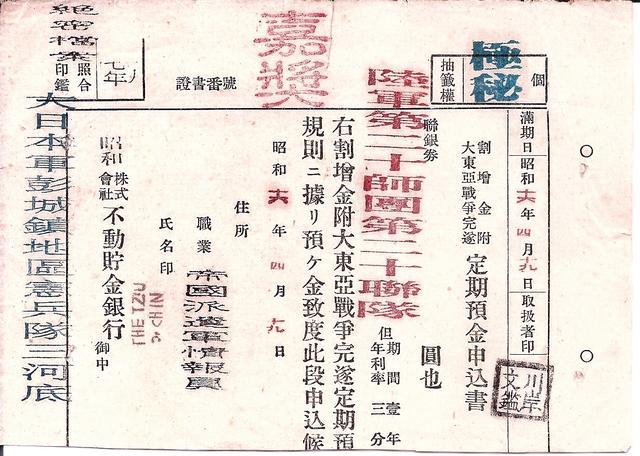 極秘
個
抽籤權
滿期日 昭和 六 年 四 月 九 日 取扱者印
割增金附
大東亞戰爭完遂
定期預金申込書
川岸文鑑
聯銀券
圓也
陸軍第二十師團第二十聯隊
但 期間壹年
年利率三分
右割增金附大東亞戰爭完遂定期預
規則ニ據リ預ケ金致度此段申込候
嘉獎
昭和 六 年 四 月 九 日
證書番號
住所
職業 帝國派遣軍情報員
氏名印
THE TZU
CHIN
昭和
株式會社 不動貯金銀行 御中
七年
照合
印鑑
絶密檔案
大日本軍彭城鎮地區憲兵隊三河底